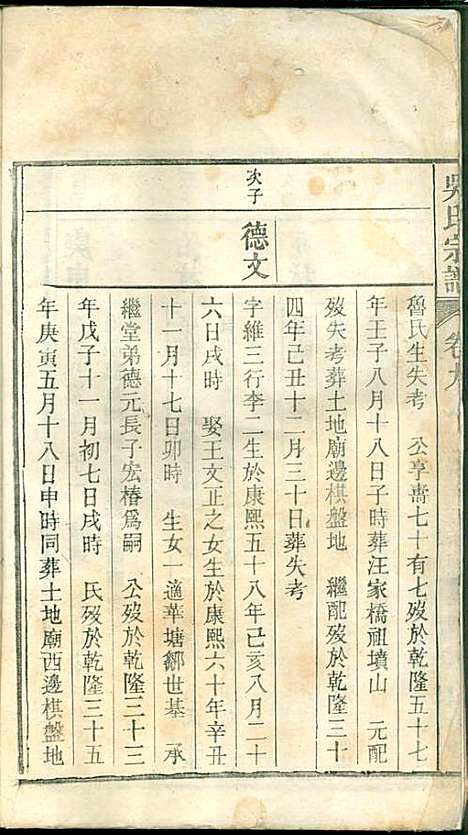 吳氏宗譜
卷九
魯氏生失考　公享壽七十有七歿於乾隆五十七
年壬子八月十八日子時葬汪家橋祖墳山　元配
歿失考葬土地廟邊棋盤地　繼配歿於乾隆三十
四年己丑十二月三十日葬失考
次子
德文
字維三行李二生於康熙五十八年己亥八月二十
六日戌時　娶王文正之女生於康熙六十年辛丑
十一月十七日卯時　生女一適華塘鄒世基　承
繼堂弟德元長子宏椿爲嗣　公歿於乾隆三十三
年戊子十一月初七日戌時　氏歿於乾隆三十五
年庚寅五月十八日申時同葬土地廟西邊棋盤地